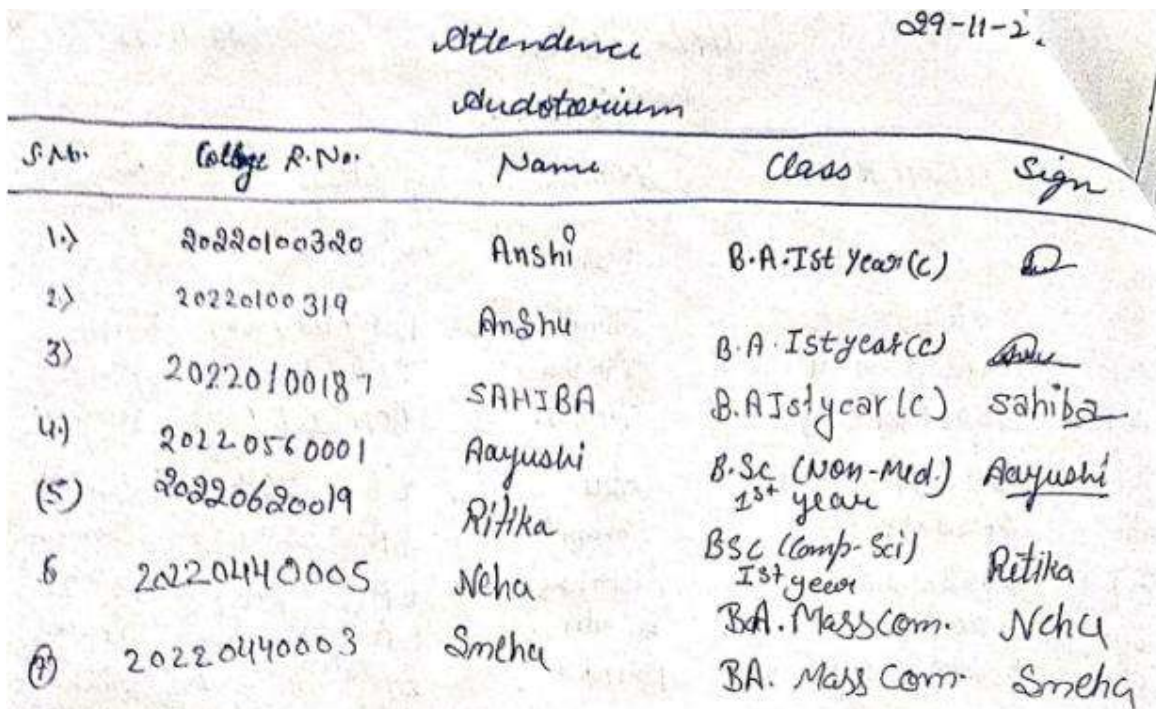 29-11-2
Attendence
Audotorium
S.No. College R.No. Name Class Sign
1.) 20220100320 Anshi B.A. Ist Year (C)
2.) 20220100319 Anshu B.A. Ist year (C)
3) 20220100187 SAHIBA B.A Ist year (C) Sahiba
4.) 20220560001 Aayushi B.Sc (Non-Med.) Aayushi
1st year
(5) 20220620019 Ritika BSC (Comp-Sci) Ritika
Ist year
6 20220440005 Neha BA. Mass Com. Neha
7 20220440003 Sneha BA. Mass Com. Sneha